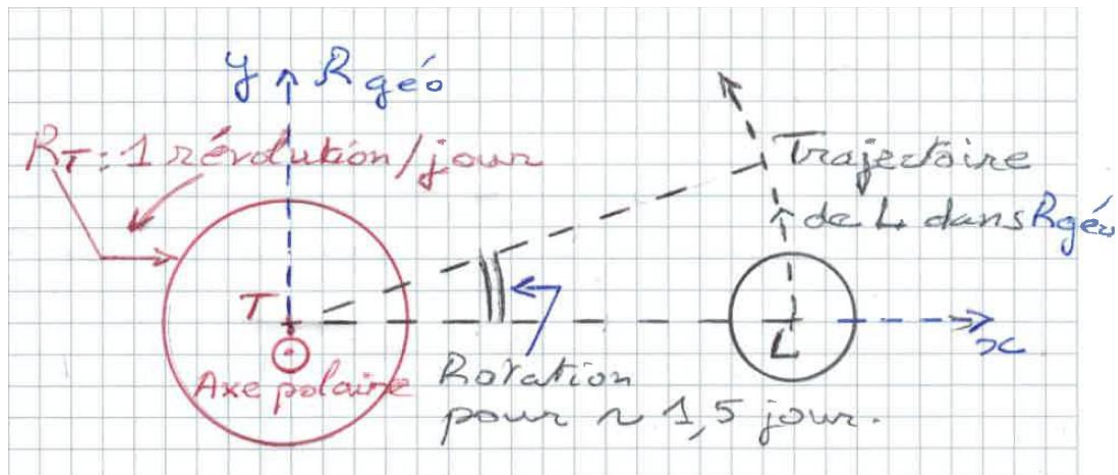 y R géo
R_T : 1 révolution/jour
Trajectoire
de L dans Rgéo
T
L
x
Axe polaire
Rotation
pour ~ 1,5 jour.